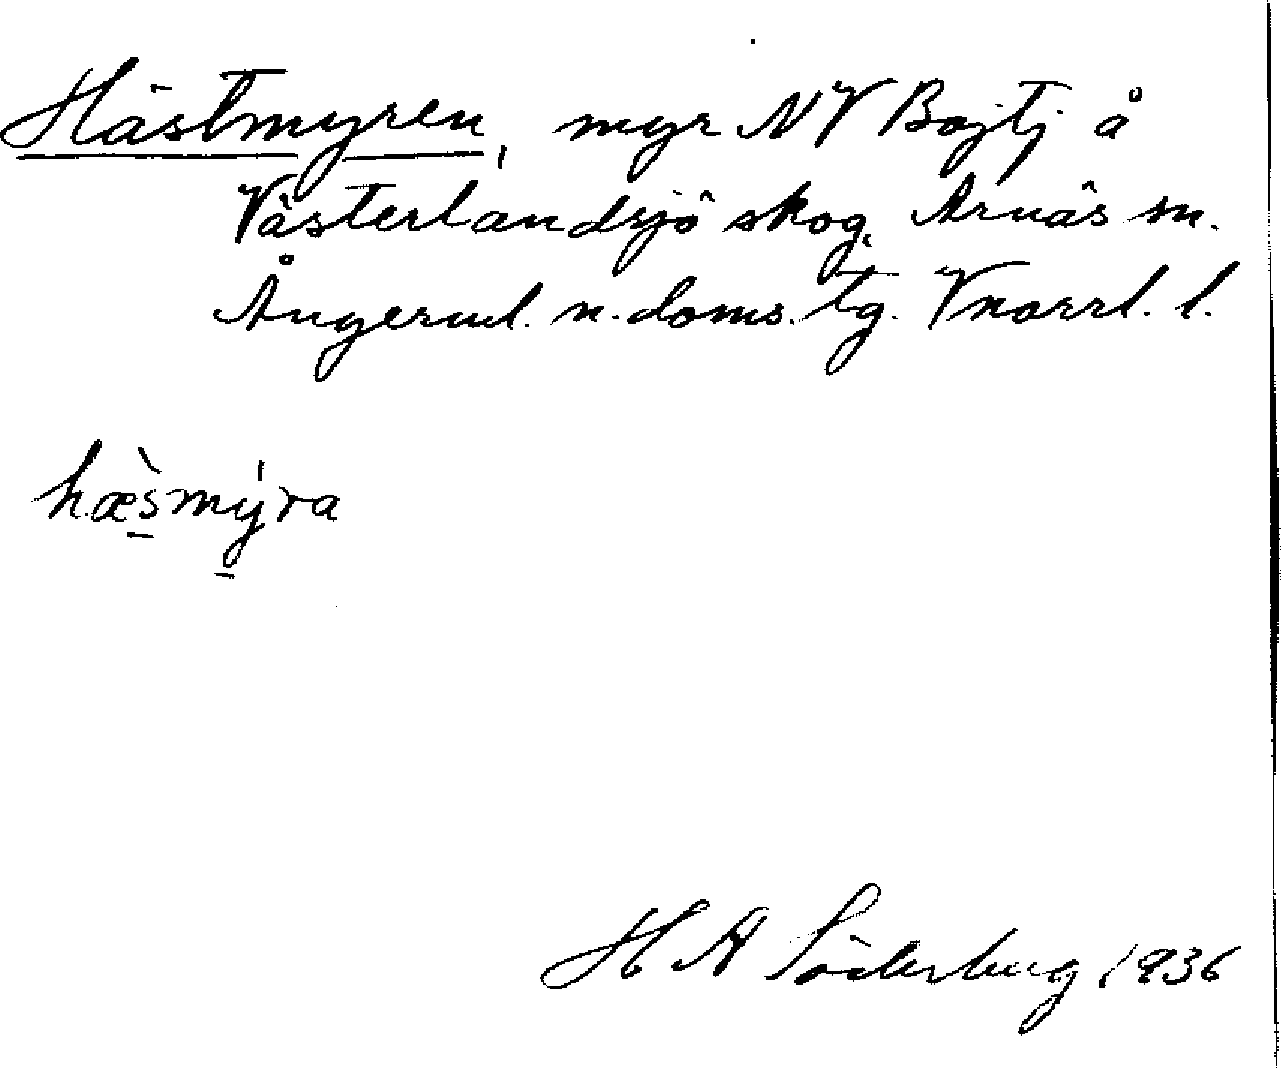 Hästmyren, myr NV Bojtj å
Västerlandsjö skog, Arnäs sn.
Ångerml. n. doms. tg. Vnorrl. l.
hæ̀s̱mý̱ra
H A Söderberg 1936